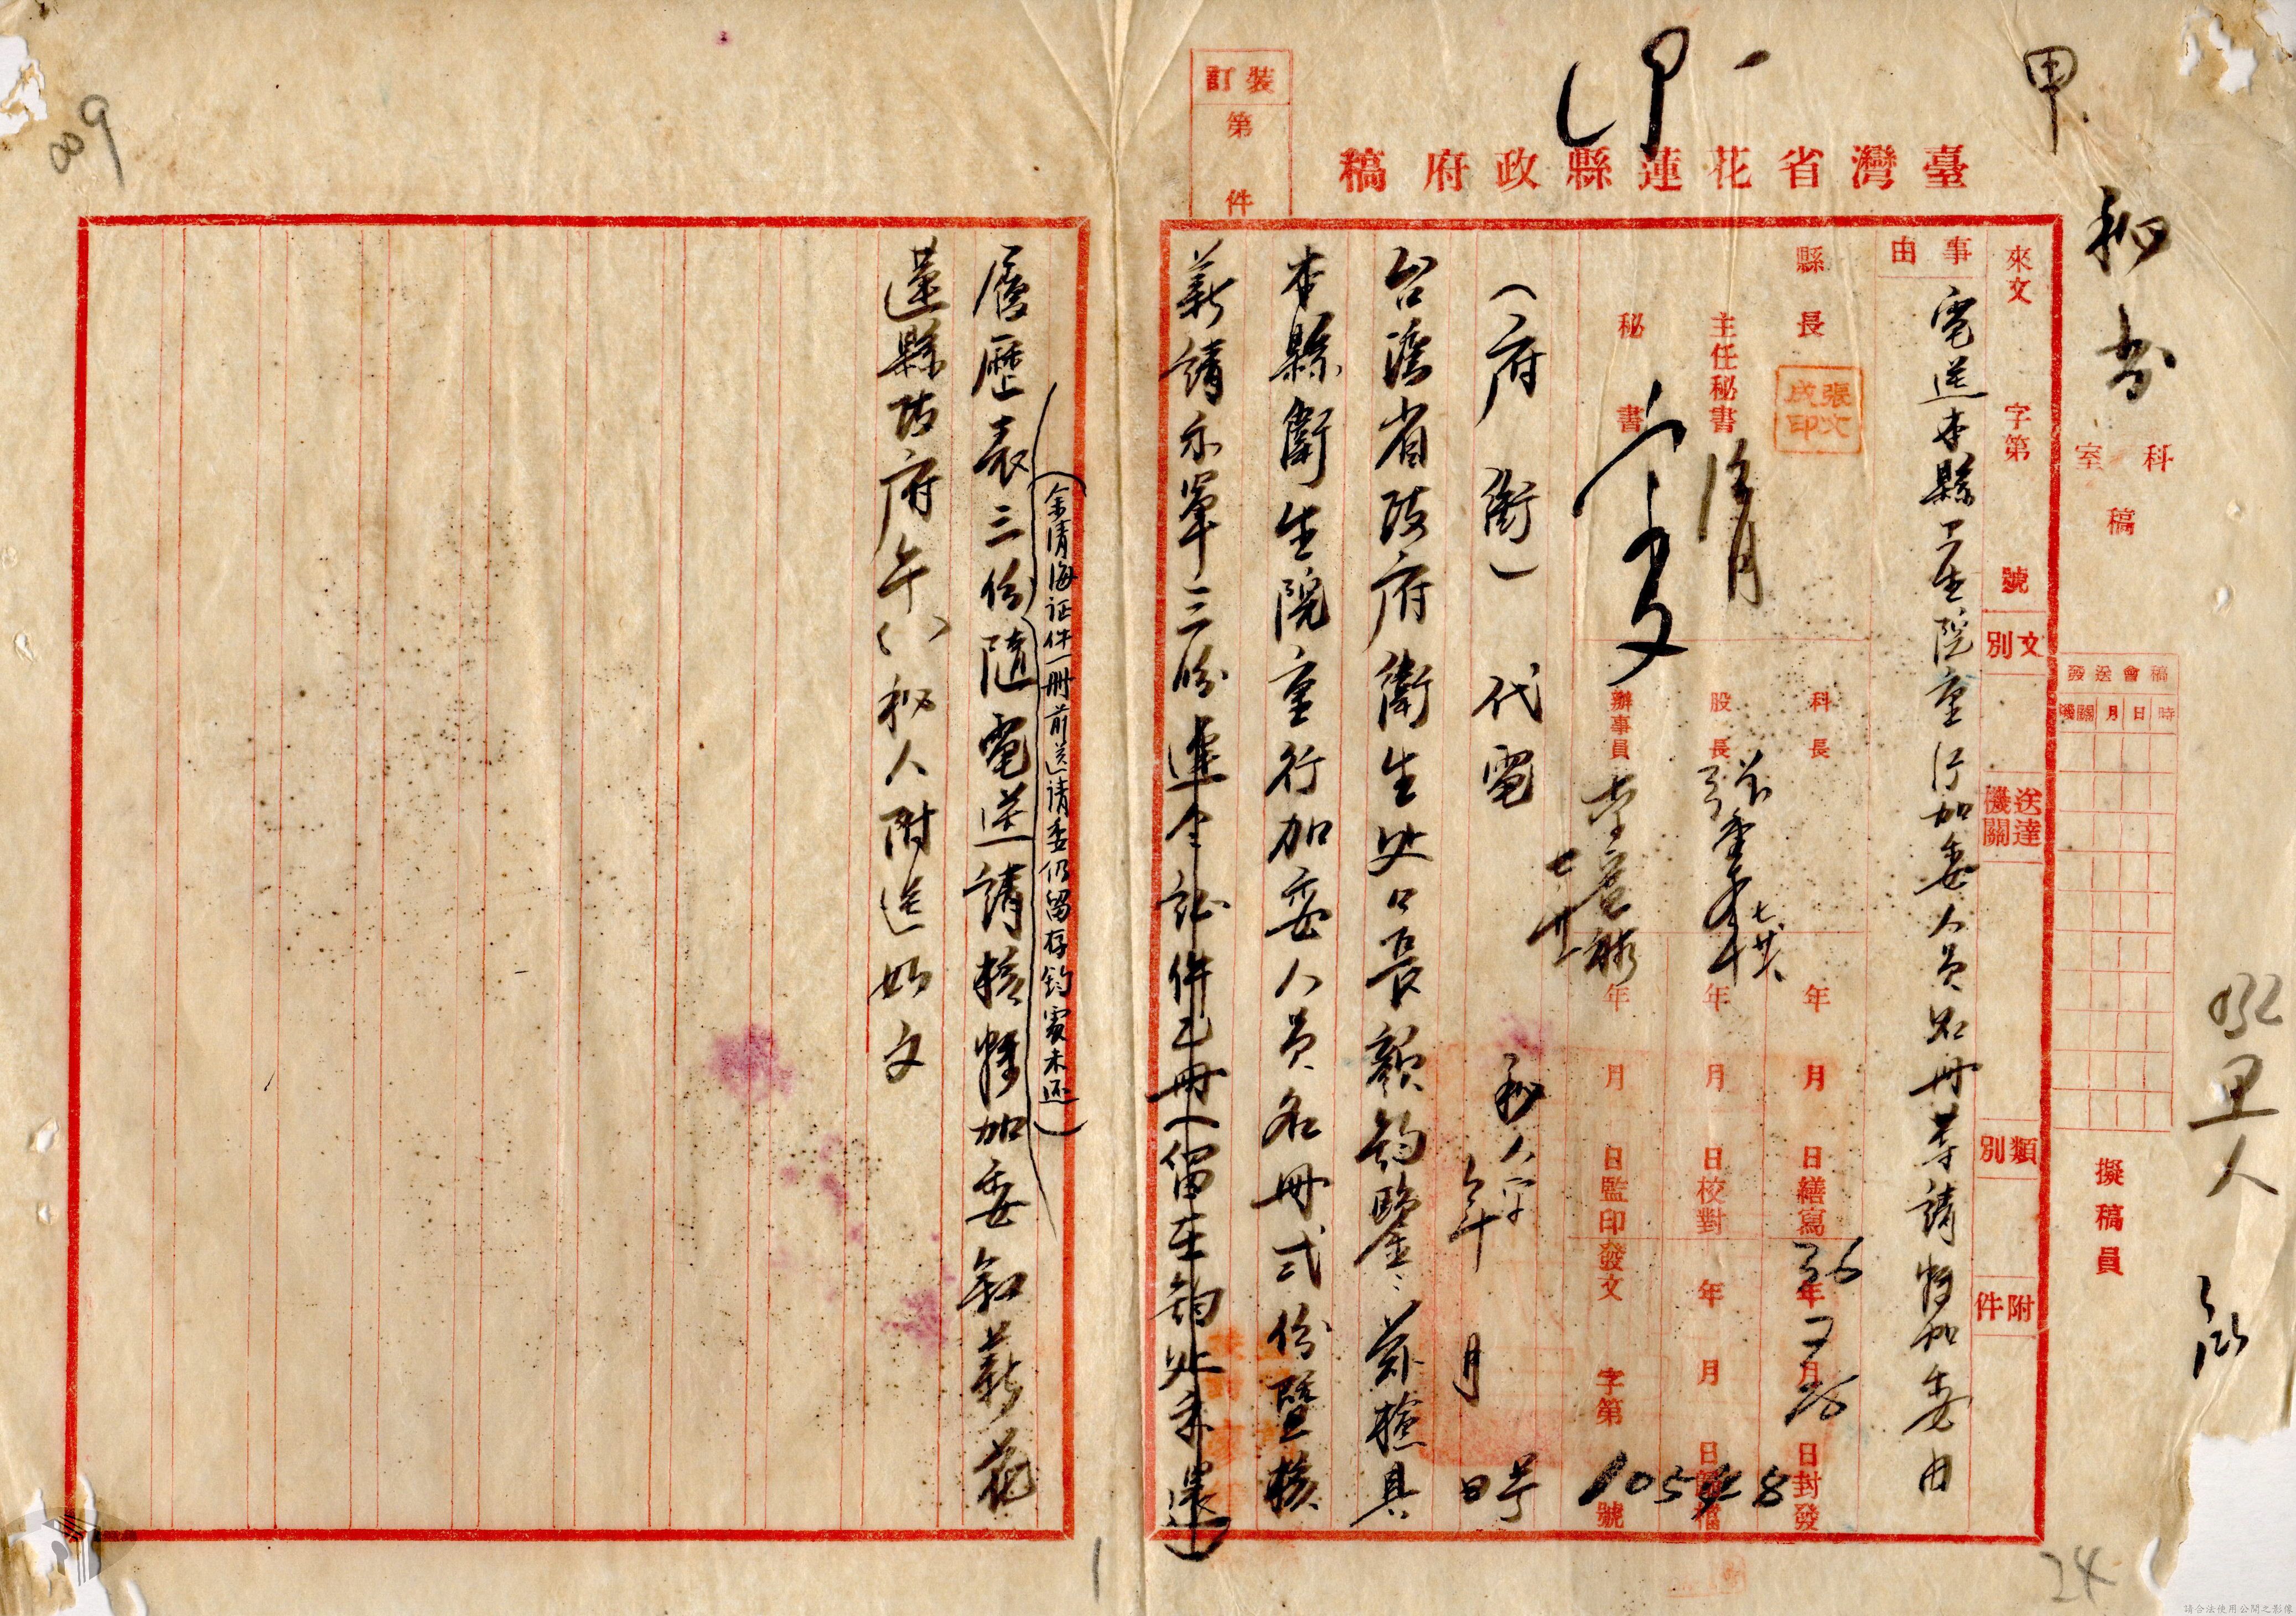 甲
臺灣省花蓮縣政府稿
裝訂第 件
秘書 科室 稿
擬稿員
稿會送發
時日月機關
來文 字第 號
文別
送達機關
類別
附件
事由
電送本縣卫生院重行加委人員名冊等請核加委由
縣長
張文成印
主任秘書
秘書
科長
股長
辦事員
年 月 日繕寫
年 月 日校對
年 月 日監印
36年7月28日封發
年 月 日歸檔
發文 字第 號
10548
(府銜)代電
秘人字 號
年 月 日
台灣省政府衛生处口長顏鈞鑒:茲檢具
本縣衛生院重行加委人員名冊弍份暨核
薪請示單三份連仝証件乙冊(留在鈞处未還)
(余清海证件一册前送请委仍留存钧處未还)
履歷表三份隨電送請核轉加委敍薪花
蓮縣政府午 秘人附送如文
009
24
1
請合法使用公開之影像